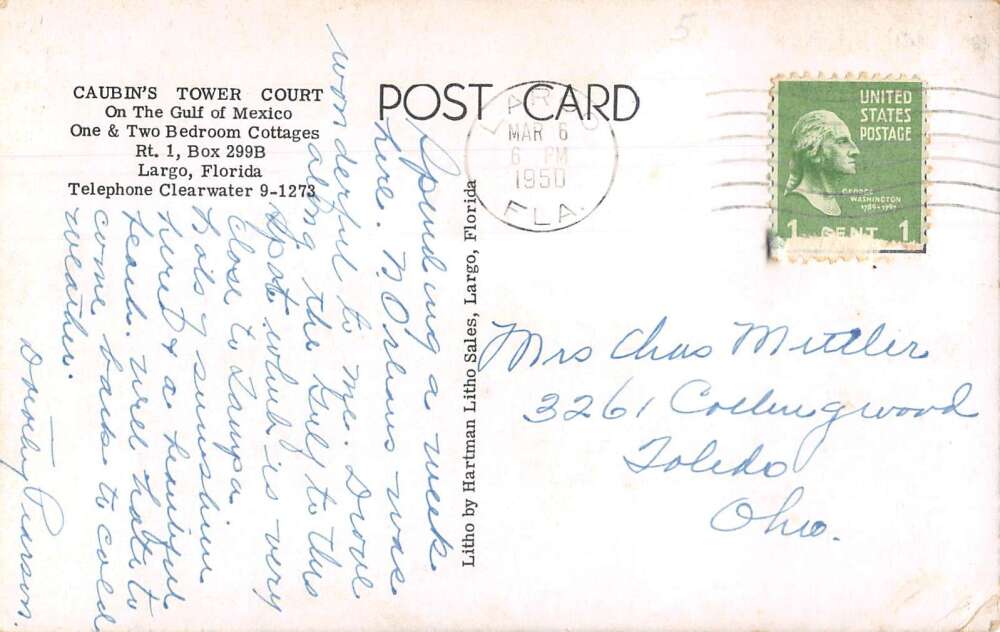 5
CAUBIN'S TOWER COURT
On The Gulf of Mexico
One & Two Bedroom Cottages
Rt. 1, Box 299B
Largo, Florida
Telephone Clearwater 9-1273
POST CARD
LARGO
MAR 6
6 PM
1950
FLA.
UNITED
STATES
POSTAGE
GEORGE
WASHINGTON
1789-1797
1 CENT 1
Litho by Hartman Litho Sales, Largo, Florida
Spending a week
here. N. Orleans was
wonderful to me. Drove
along the Gulf to this
spot which is very
close to Tampa.
Lots of sunshine
here & a beautiful
beach. Will hate to
come back to cold
weather.
Dorothy Pearson.
Mrs Chas Mettler
3261 Collingwood
Toledo
Ohio.